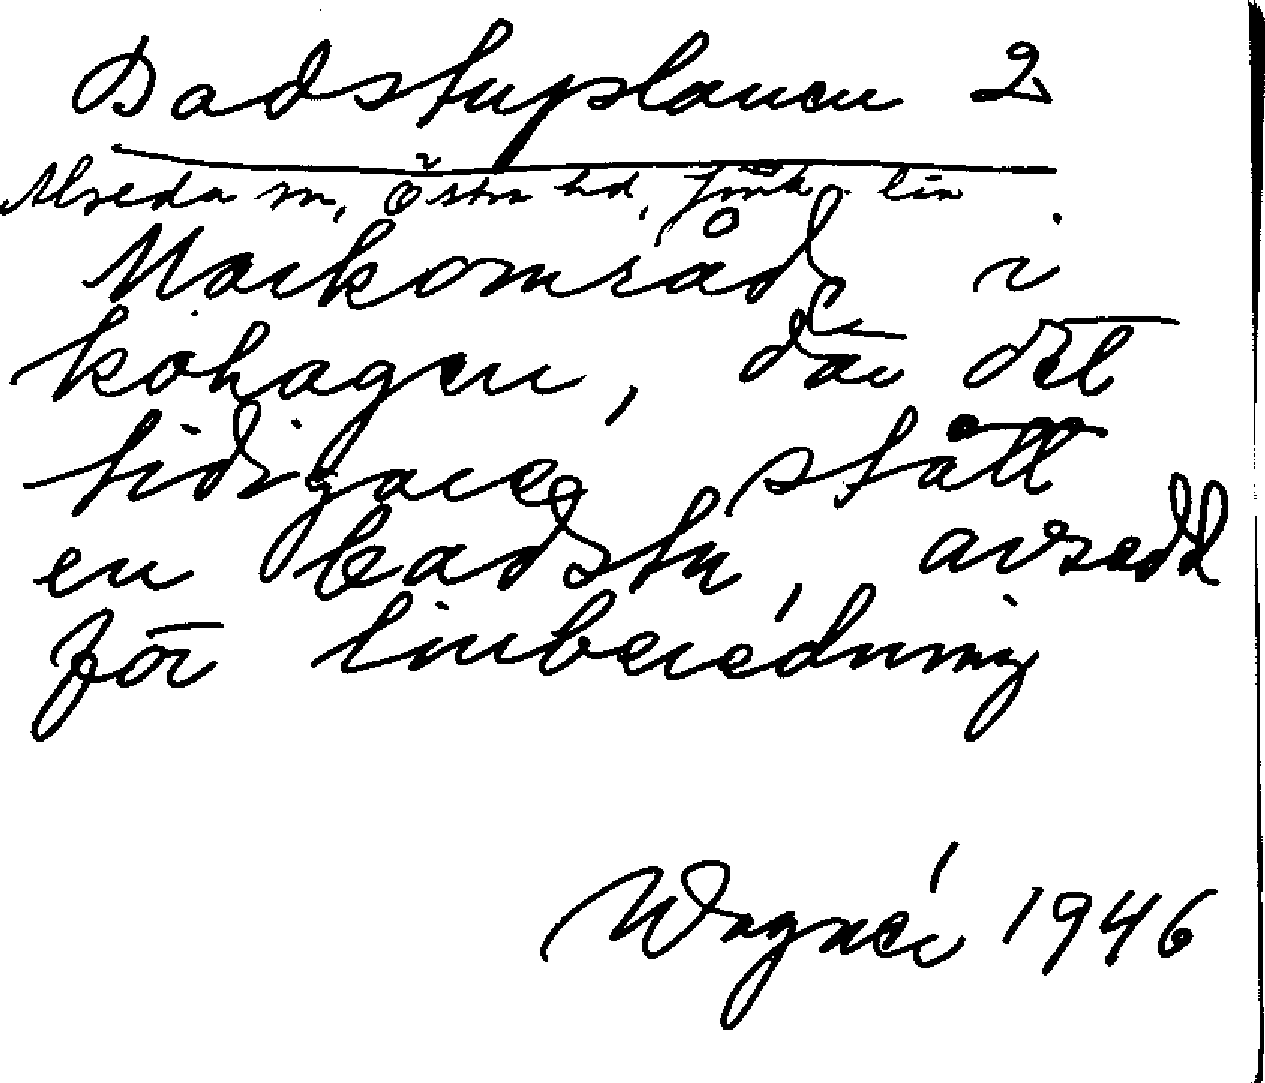 Badstuplanen 2
Alseda sn, Östra hd, Jönk. län
Markområde i
kohagen, där det
tidigare stått
en badstu, avsedd
för linberedning
Wagnér 1946